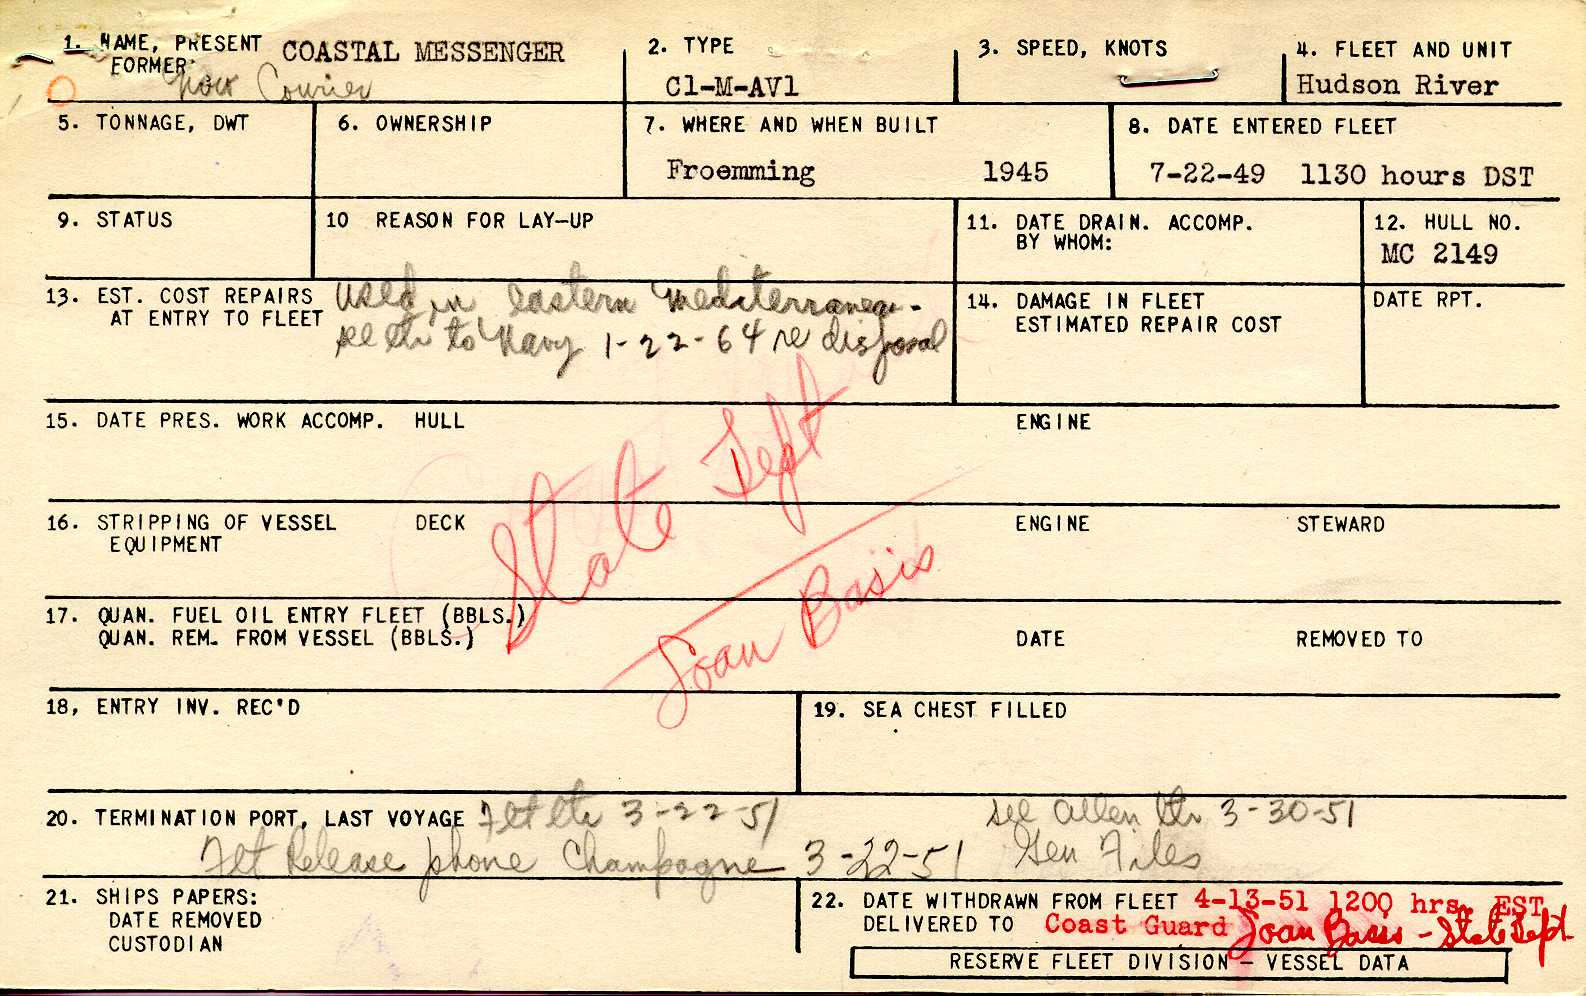 1. NAME, PRESENT COASTAL MESSENGER
FORMER
now Courier
2. TYPE
C1-M-AV1
3. SPEED, KNOTS
4. FLEET AND UNIT
Hudson River
5. TONNAGE, DWT
6. OWNERSHIP
7. WHERE AND WHEN BUILT
Froemming 1945
8. DATE ENTERED FLEET
7-22-49 1130 hours DST
9. STATUS
10 REASON FOR LAY-UP
11. DATE DRAIN. ACCOMP.
BY WHOM:
12. HULL NO.
MC 2149
13. EST. COST REPAIRS
AT ENTRY TO FLEET
used in eastern mediterranean -
see ltr to Navy 1-22-64 re disposal
14. DAMAGE IN FLEET
ESTIMATED REPAIR COST
DATE RPT.
15. DATE PRES. WORK ACCOMP. HULL ENGINE
State Dept
Loan Basis
16. STRIPPING OF VESSEL DECK ENGINE STEWARD
EQUIPMENT
17. QUAN. FUEL OIL ENTRY FLEET (BBLS.)
QUAN. REM. FROM VESSEL (BBLS.) DATE REMOVED TO
18, ENTRY INV. REC'D
19. SEA CHEST FILLED
20. TERMINATION PORT, LAST VOYAGE Flt ltr 3-22-51 see Allen ltr 3-30-51
Flt Release phone Champagne 3-22-51 Gen Files
21. SHIPS PAPERS:
DATE REMOVED
CUSTODIAN
22. DATE WITHDRAWN FROM FLEET 4-13-51 1200 hrs. EST
DELIVERED TO Coast Guard Loan Basis - State Dept
RESERVE FLEET DIVISION - VESSEL DATA